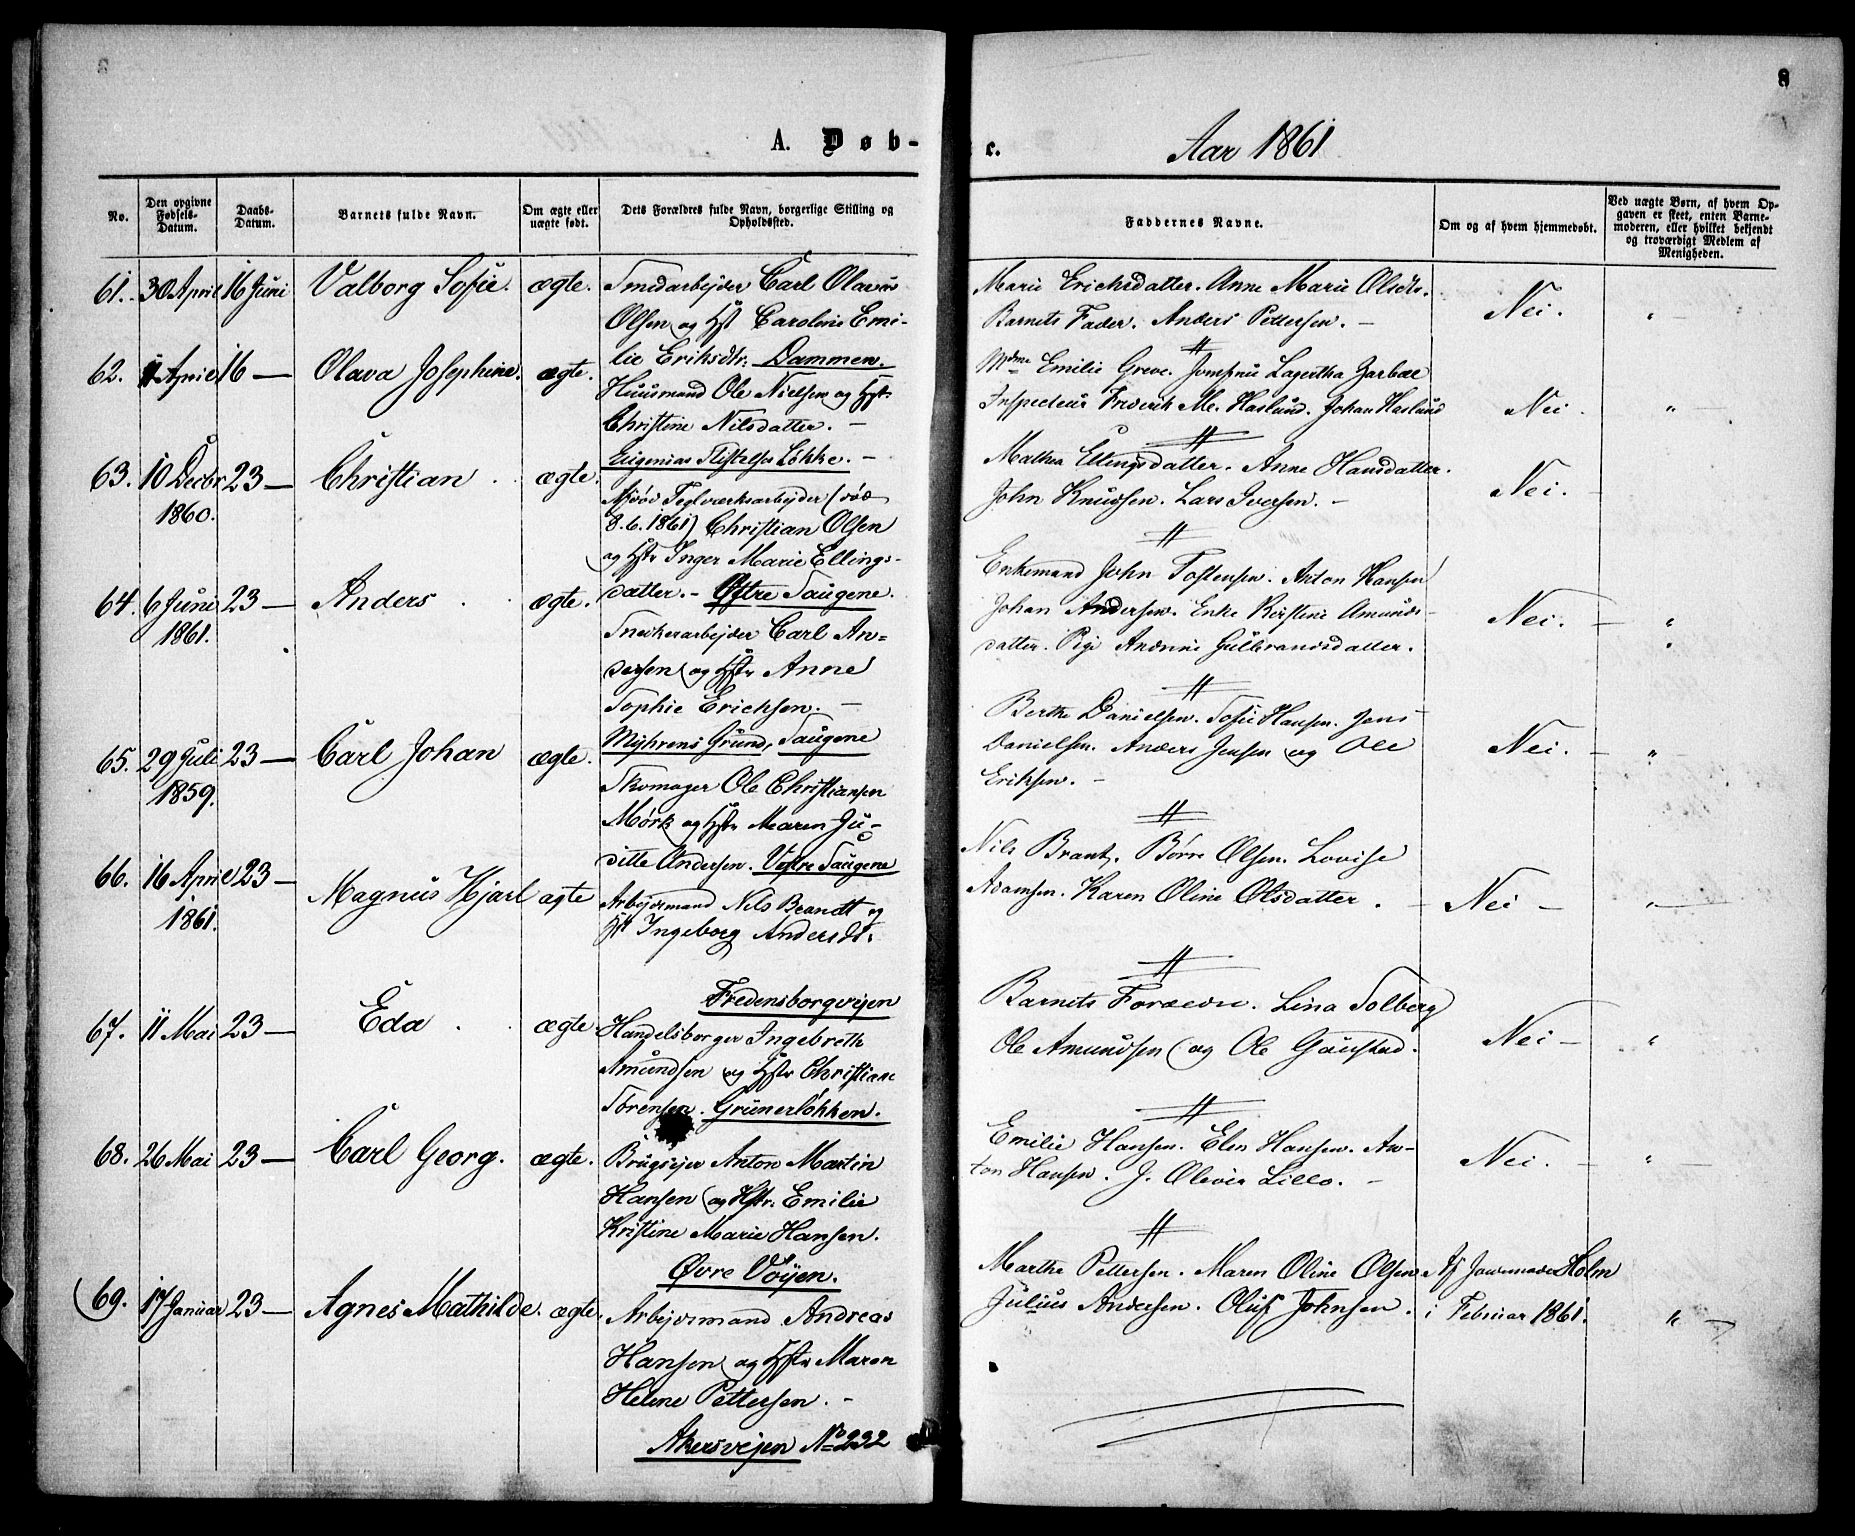 8
A. Døb-
c. Aar 1861
No.
Den opgivne Fødsels-Datum.
Daabs-Datum.
Barnets fulde Navn.
Om ægte eller uægte født.
Dets Forældres fulde Navn, borgerlige Stilling og Opholdssted.
Faddernes Navne.
Om og af hvem hjemmedøbt.
Ved uægte Børn, af hvem Opgaven er skeet, enten Barnemoderen, eller hvilket bekjendt og troværdigt Medlem af Menigheden.
61. 30 April 16 Juni Valborg Sofie. ægte.
Smedarbejder Carl Olavus
Olsen og Hst Caroline Emi-
lie Eriksdtr. Dammen.
Marie Erichsdatter. Anne Marie Olsdtr.
Barnets Fader. Anders Pettersen. –
Nei. "
62. April 16 — Olava Josephine. ægte.
Huusmand Ole Nielsen og Hst.
Christine Nilsdatter. –
Eugenias Stiftelses Løkke. –
Mdme Emilie Greve. Jomfrue Lagertha
Inspecteur Frederik M. Haslund. Johan Haslund
Nei. "
63. 10 Decbr 23 — Christian ægte.
1860.
Afdød Teglværksarbejder (død
8.6.1861) Christian Olsen
og Hstr Inger Marie Ellings-
datter. – Østre Saugene.
Mathea Ellingsdatter. Anne Hansdatter.
John Knudsen. Lars Iversen. –
Nei.
64. 6 Juni 23 — Anders ægte.
1861.
Snedkerarbejder Carl An-
dersen og Hstr Anne
Sophie Erichsen. –
Myhrens Grund, Saugene
Enkemand John Tostensen. Anton Hansen
Johan Andersen. Enke Kirstine Amunds-
datter. Pige Andrine Gulbrandsdatter.
Nei. "
65. 29 Juli 23 — Carl Johan ægte.
1859.
Skomager Ole Christiansen
Mørk og Hstr Maren Ju-
ditte Andersen. Vestre Saugene
Berthe Danielsen. Sofie Hansen. Jens
Danielsen. Anders Jensen og Ole
Eriksen. –
Nei. "
66. 16 April 23 — Magnus Hjarl ægte
1861.
Arbejdsmand Nils Brandt og
Hst Ingeborg Andersdt.
Fredensborgveien
Nils Brant. Børre Olsen. Lovise
Adamsen. Karen Oline Olsdatter.
Nei – "
67. 11 Mai 23 — Eda ægte
Handelsborger Ingebreth
Amundsen og Hstr Christiane
Sørensen. Grünerløkken.
Barnets Forældre. Lina Solberg
Ole Amundsen og Ole Gaustad.
Nei – "
68. 26 Mai 23 — Carl Georg. ægte.
Brugseier Anton Martin
Hansen og Hstr. Emilie
Kristine Marie Hansen.
Øvre Vøyen.
Emilie Hansen. Elen Hansen. An-
ton Hansen. J. Olivia Lillo. –
Nei. "
69. 17 Januar 23 — Agnes Mathilde. ægte.
Arbejdsmand Andreas
Hansen og Hstr Maren
Helene Pettersen. –
Akersvejen No 232
Marthe Pettersen. Maren Oline Olsen.
Julius Andersen. Oluf Johnsen.
Af Jordemoder Holm
i Februar 1861. "